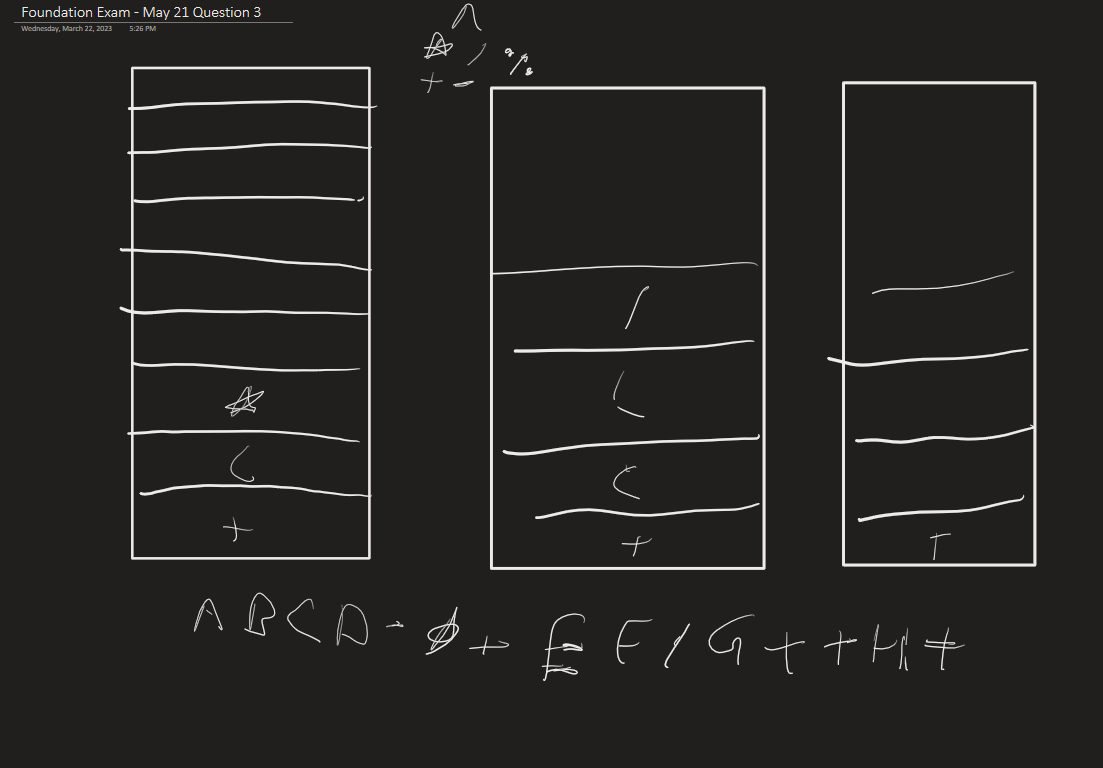 Foundation Exam - May 21 Question 3
Wednesday, March 22, 2023 5:26 PM
^
* /
%
+ -
/
(
*
(
(
+
+
+
A B C D - * + E F / G + + H +